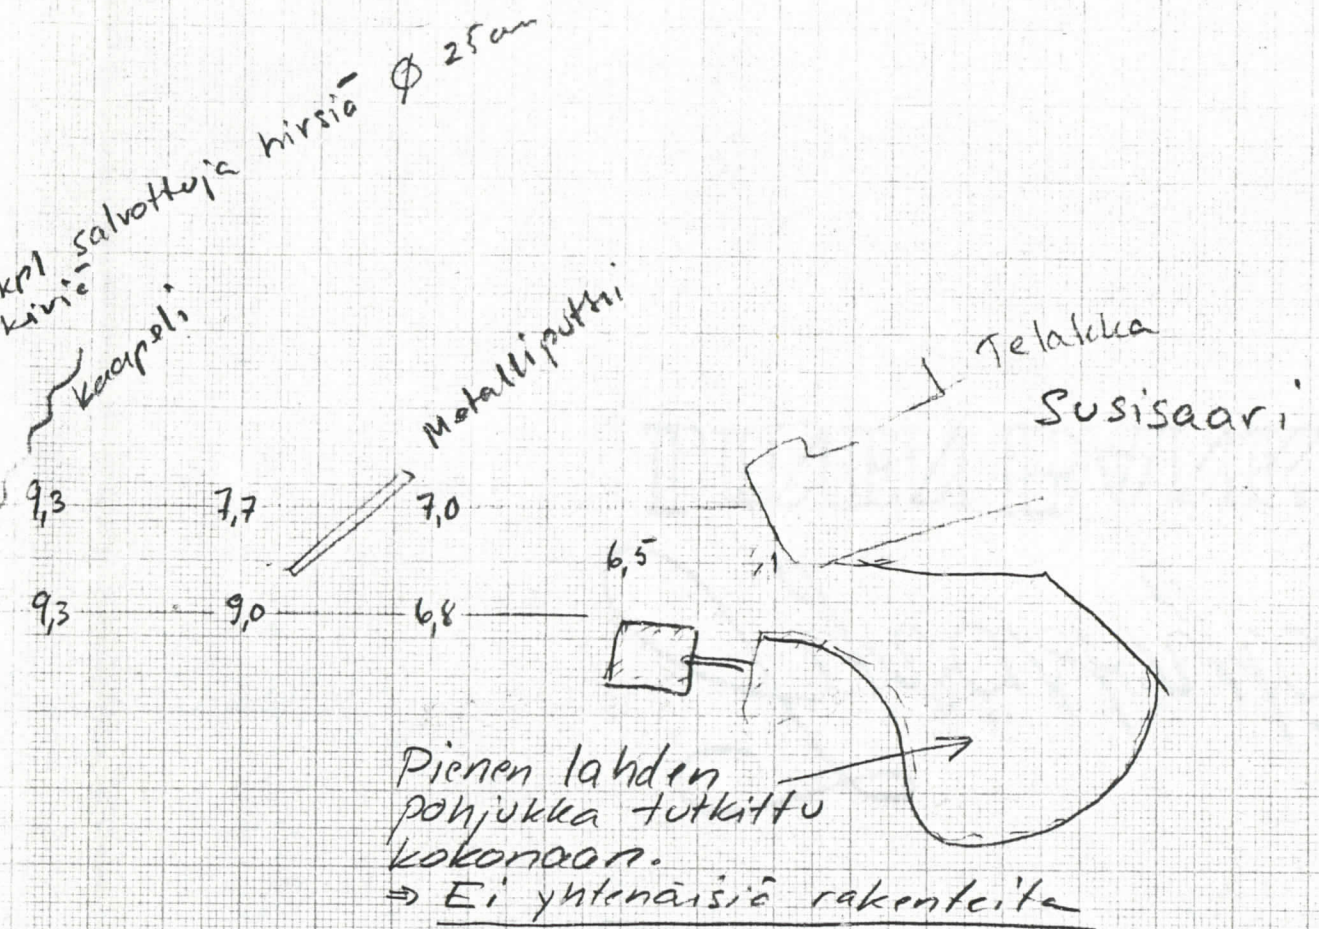 kpl salvottuja hirsiä Ø 25 cm
kiviä
kaapeli
Metalliputki
Telakka
Susisaari
9,3 7,7 7,0
6,5
9,3 9,0 6,8
Pienen lahden
pohjukka tutkittu
kokonaan.
⇒ Ei yhtenäisiä rakenteita